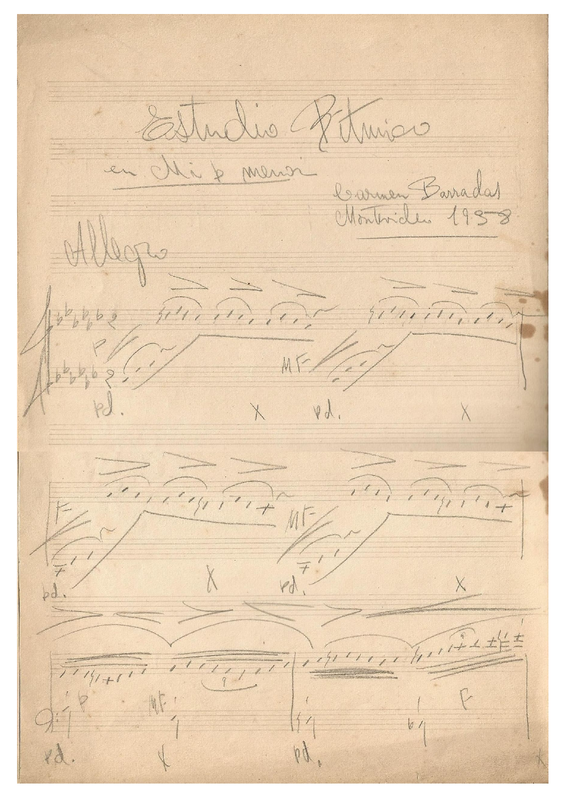 Estudio Rítmico
en Mi b menor
Carmen Barradas
Montevideo 1938
Allegro
P
MF
pd. X pd. X
F MF
pd. X pd. X
P MF F
pd. X pd. X